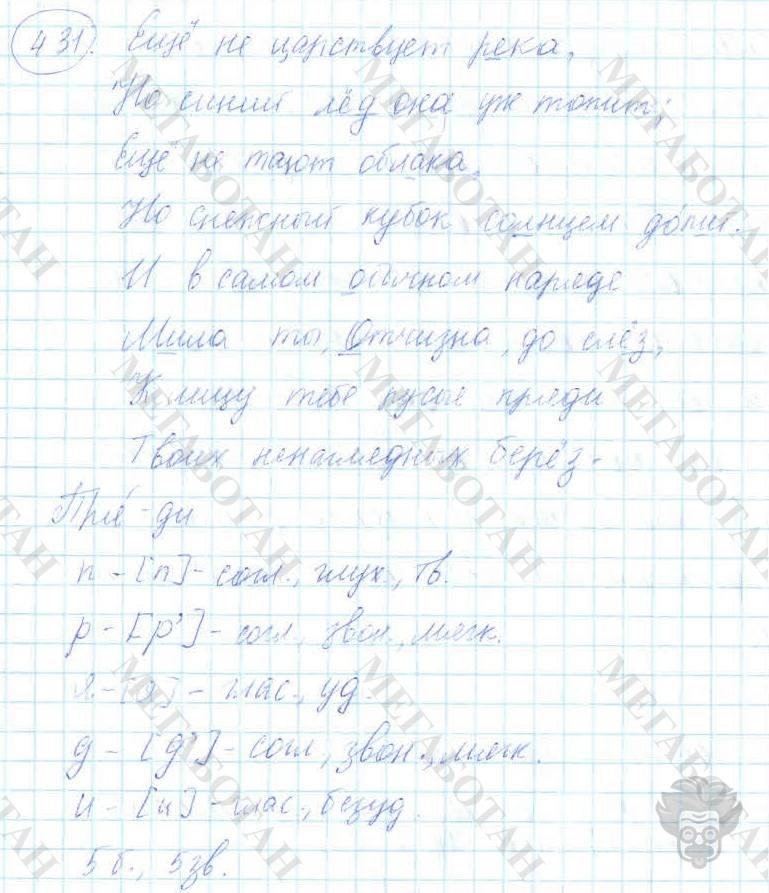 431. Ещё не царствует река,
Но синий лёд она уж топит;
Ещё не тают облака,
Но снежный кубок солнцем до́пит.
И в самом обычном наряде
Мила ты, Отчизна, до слёз,
К лицу тебе русые пряди
Твоих ненаглядных берёз.
Пря́-ди
п - [п] - согл., глух., тв.
р - [р'] - согл., звон., мягк.
я - [я] - глас., уд.
д - [д'] - согл., звон., мягк.
и - [и] - глас., безуд.
5 б., 5 зв.
МЕГАБОТАН